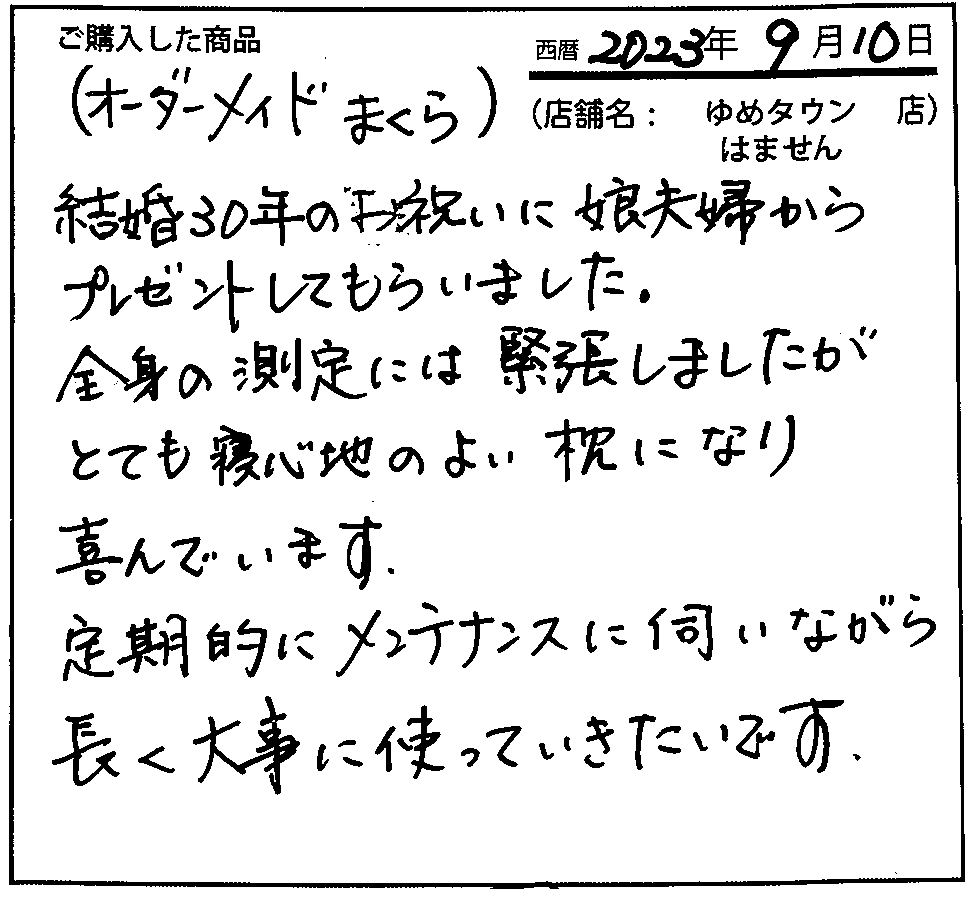 ご購入した商品
西暦 2023年 9月10日
(オーダーメイドまくら)
(店舗名： ゆめタウン 店)
はません
結婚30年のお祝いに娘夫婦から
プレゼントしてもらいました。
全身の測定には緊張しましたが
とても寝心地のよい枕になり
喜んでいます.
定期的にメンテナンスに伺いながら
長く大事に使っていきたいです.